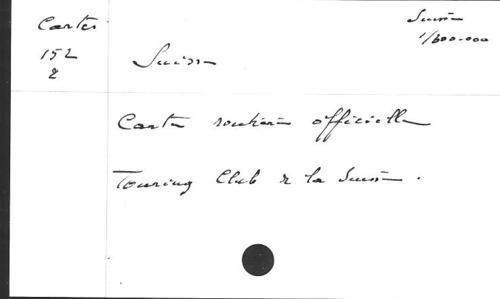 Cartes
152
2
Suisse
1/300.000
Suisse
Carte routière officielle
Touring Club de la Suisse.